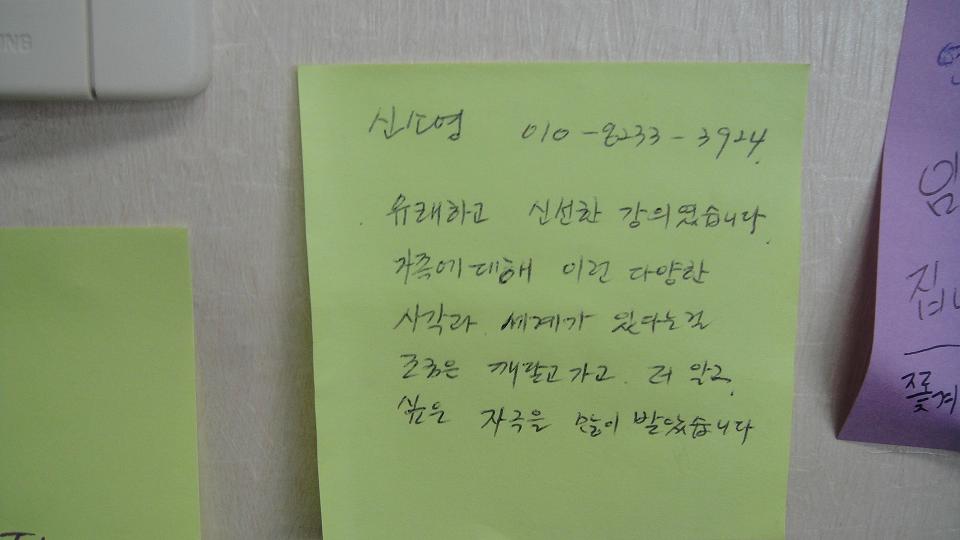 신도영 010-8233-3924
유쾌하고 신선한 강의였습니다
가족에 대해 이런 다양한
시각과 세계가 있다는걸
조금은 깨닫고 가고 더 알고
싶은 자극을 많이 받았습니다
임